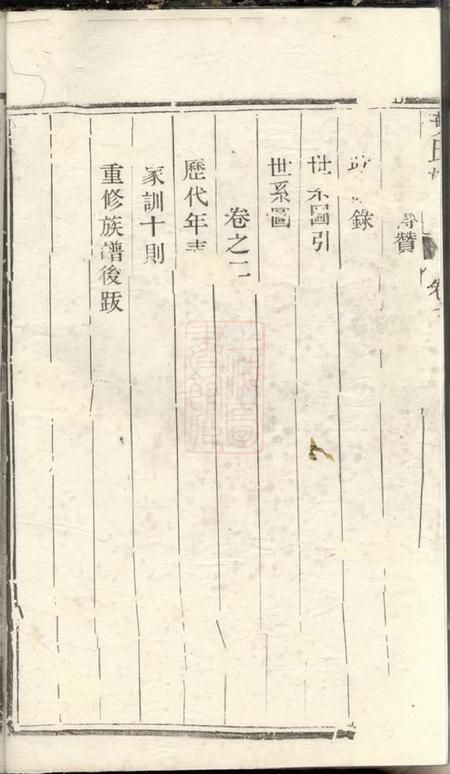 贊
錄
世系圖引
世系圖
卷之二
歷代年表
家訓十則
重修族譜後跋